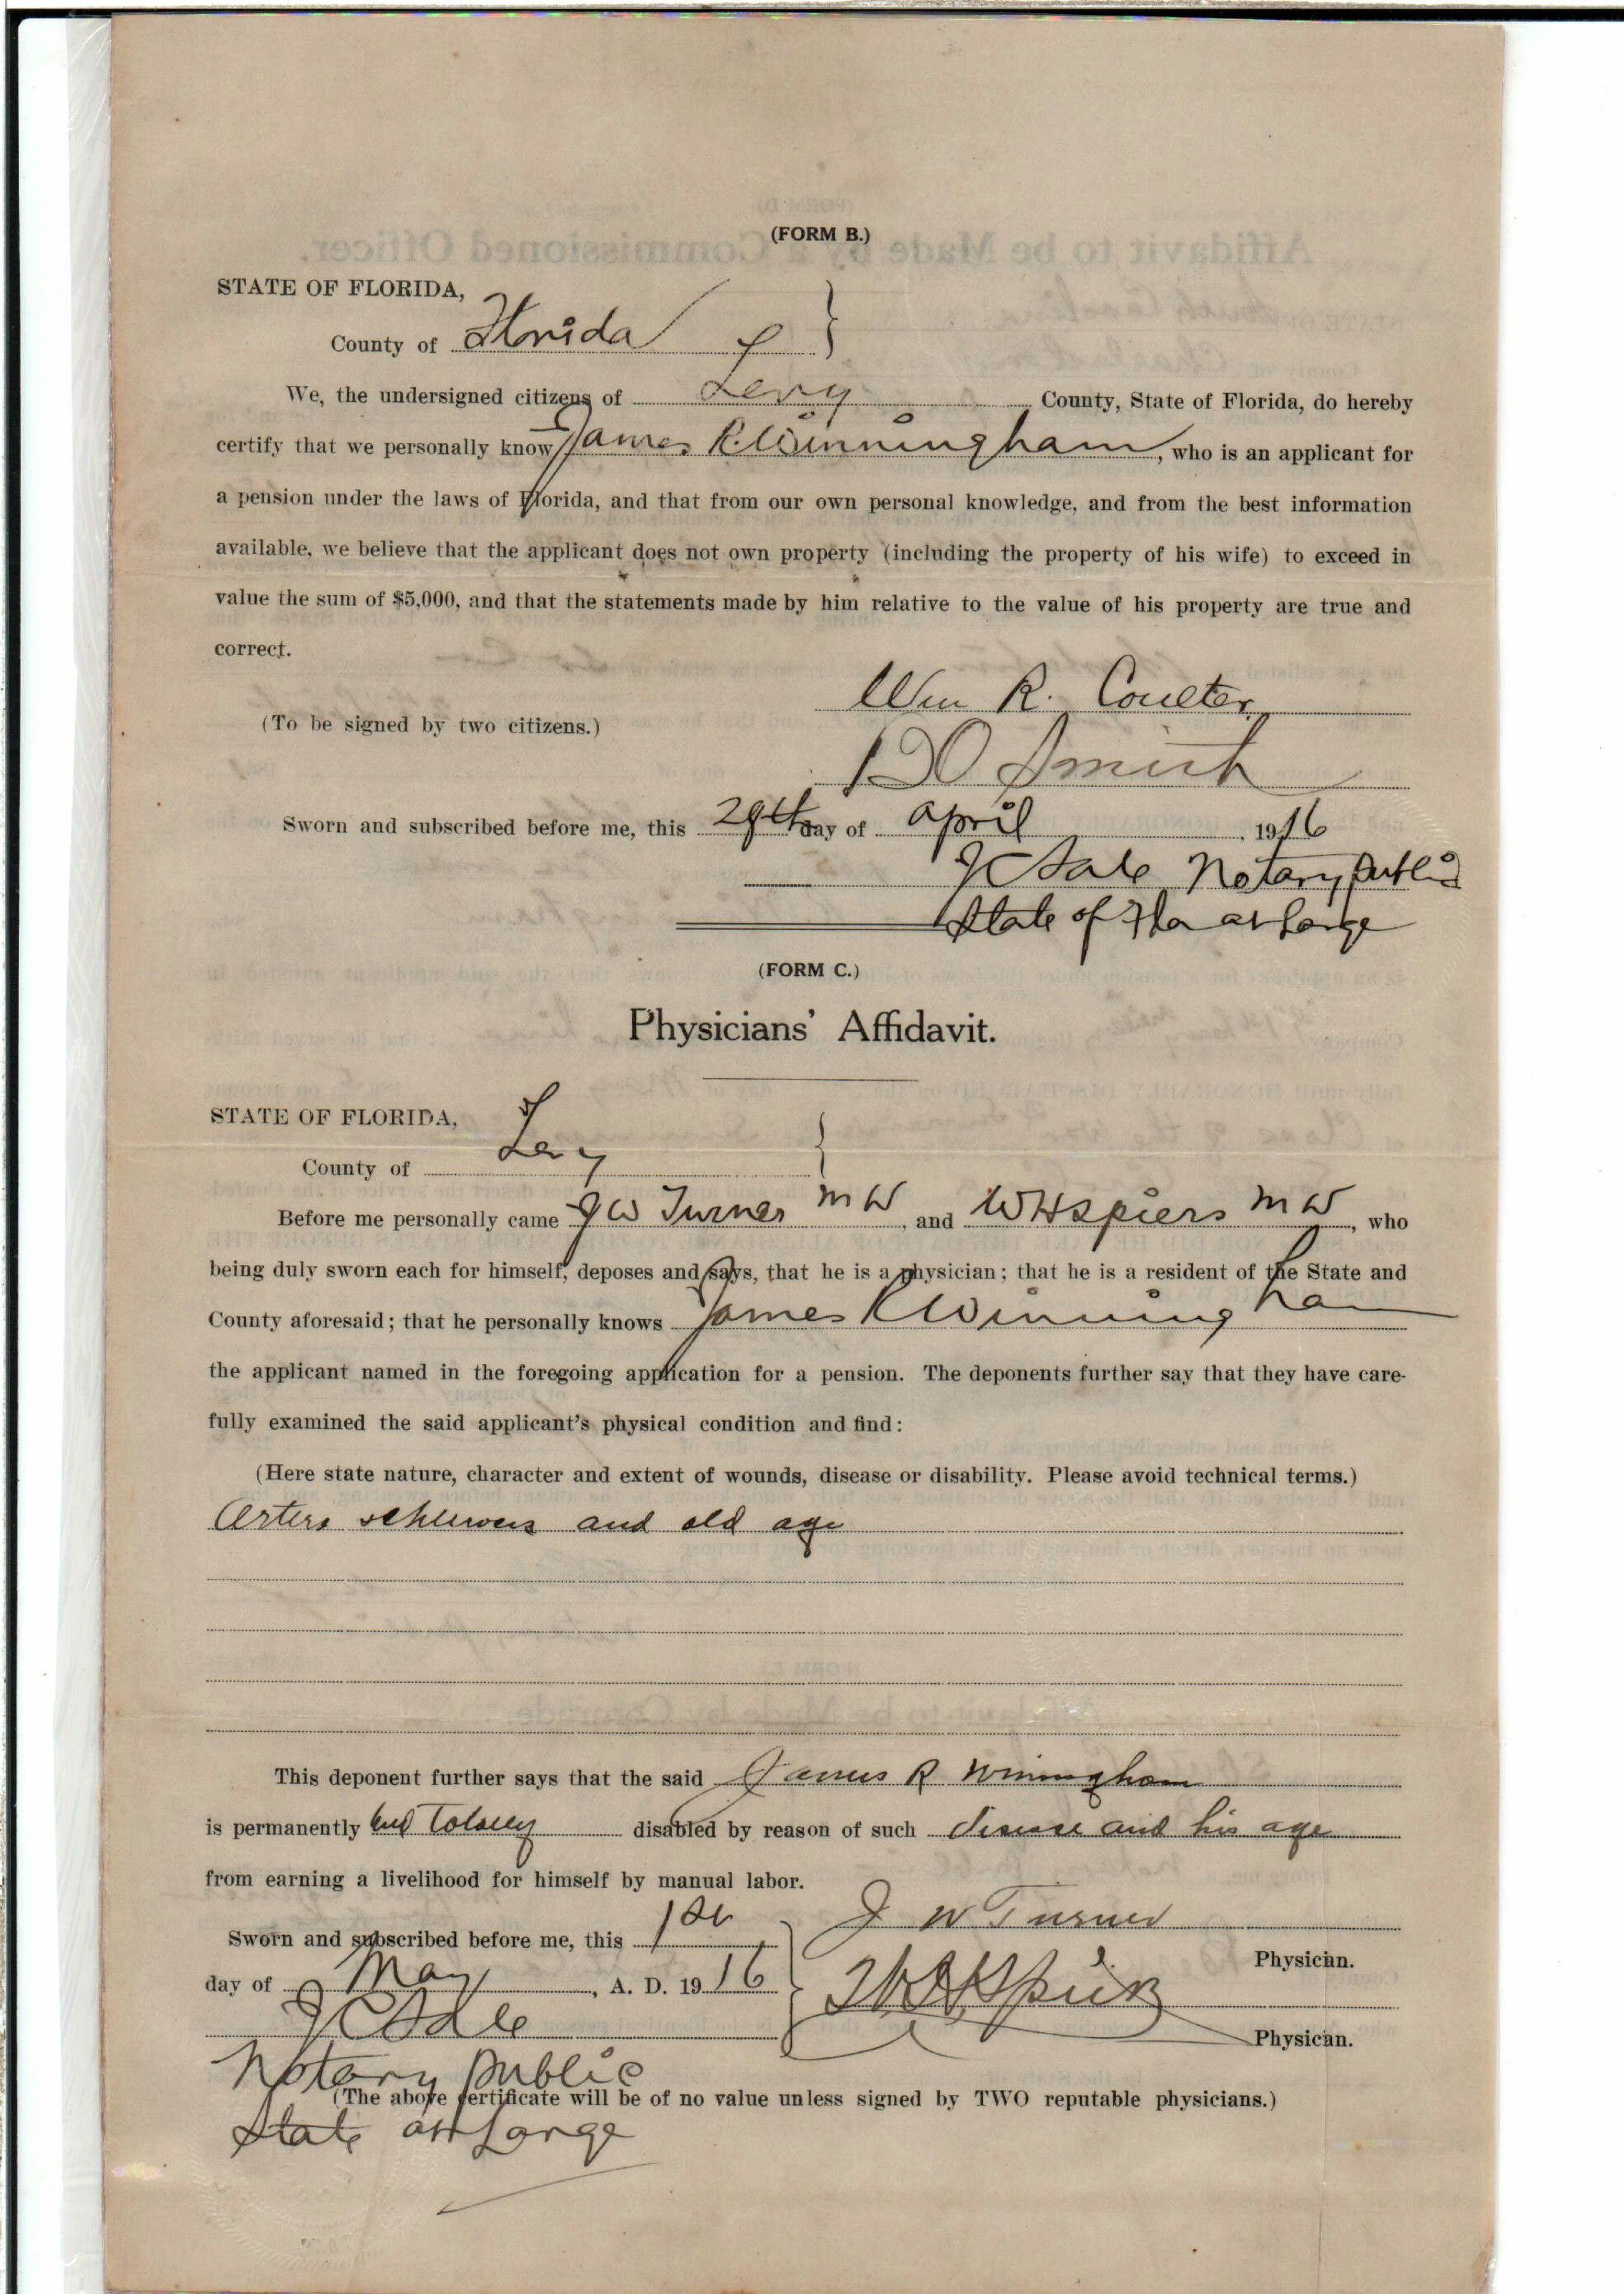 (FORM B.)
STATE OF FLORIDA,
County of Florida
We, the undersigned citizens of Levy County, State of Florida, do hereby
certify that we personally know James R. Winningham, who is an applicant for
a pension under the laws of Florida, and that from our own personal knowledge, and from the best information
available, we believe that the applicant does not own property (including the property of his wife) to exceed in
value the sum of $5,000, and that the statements made by him relative to the value of his property are true and
correct.
Wm R. Coulter
(To be signed by two citizens.)
Smith
Sworn and subscribed before me, this 29th day of April 1916
J C Sale Notary Public
State of Fla at Large
(FORM C.)
Physicians' Affidavit.
STATE OF FLORIDA,
County of Levy
Before me personally came J W Turner, and W H Spiers, who
being duly sworn each for himself, deposes and says, that he is a physician; that he is a resident of the State and
County aforesaid; that he personally knows James R Winningham
the applicant named in the foregoing application for a pension. The deponents further say that they have care-
fully examined the said applicant's physical condition and find:
(Here state nature, character and extent of wounds, disease or disability. Please avoid technical terms.)
Arterio and old age
This deponent further says that the said James R Winningham
is permanently and totally disabled by reason of such disease and his age
from earning a livelihood for himself by manual labor.
Sworn and subscribed before me, this 1st J W Turner
Physician.
day of May, A. D. 1916
J C Sale
Physican.
Notary Public
(The above certificate will be of no value unless signed by TWO reputable physicians.)
State at Large